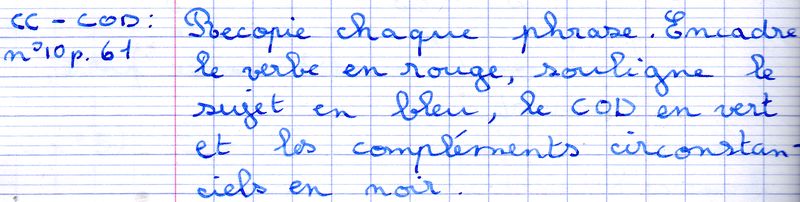 CC - COD : Recopie chaque phrase. Encadre
n°10 p. 61 le verbe en rouge, souligne le
sujet en bleu, le COD en vert
et les compléments circonstan-
ciels en noir.